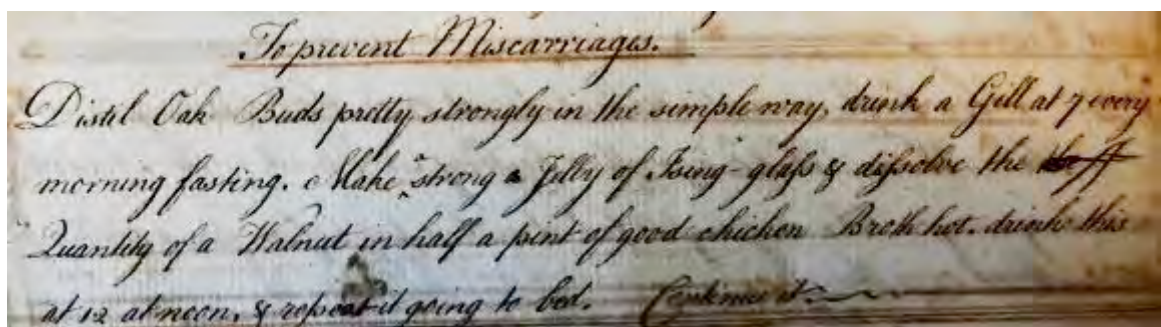 To prevent Miscarriages.
Distil Oak Buds pretty strongly in the simple way, drink a Gill at 7 every
morning fasting. Make a strong Jelly of Ising-glaſs & diſsolve the
Quantity of a Walnut in half a pint of good chicken Broth hot. drink this
at 12 at noon, & repeat it going to bed. Continue it.